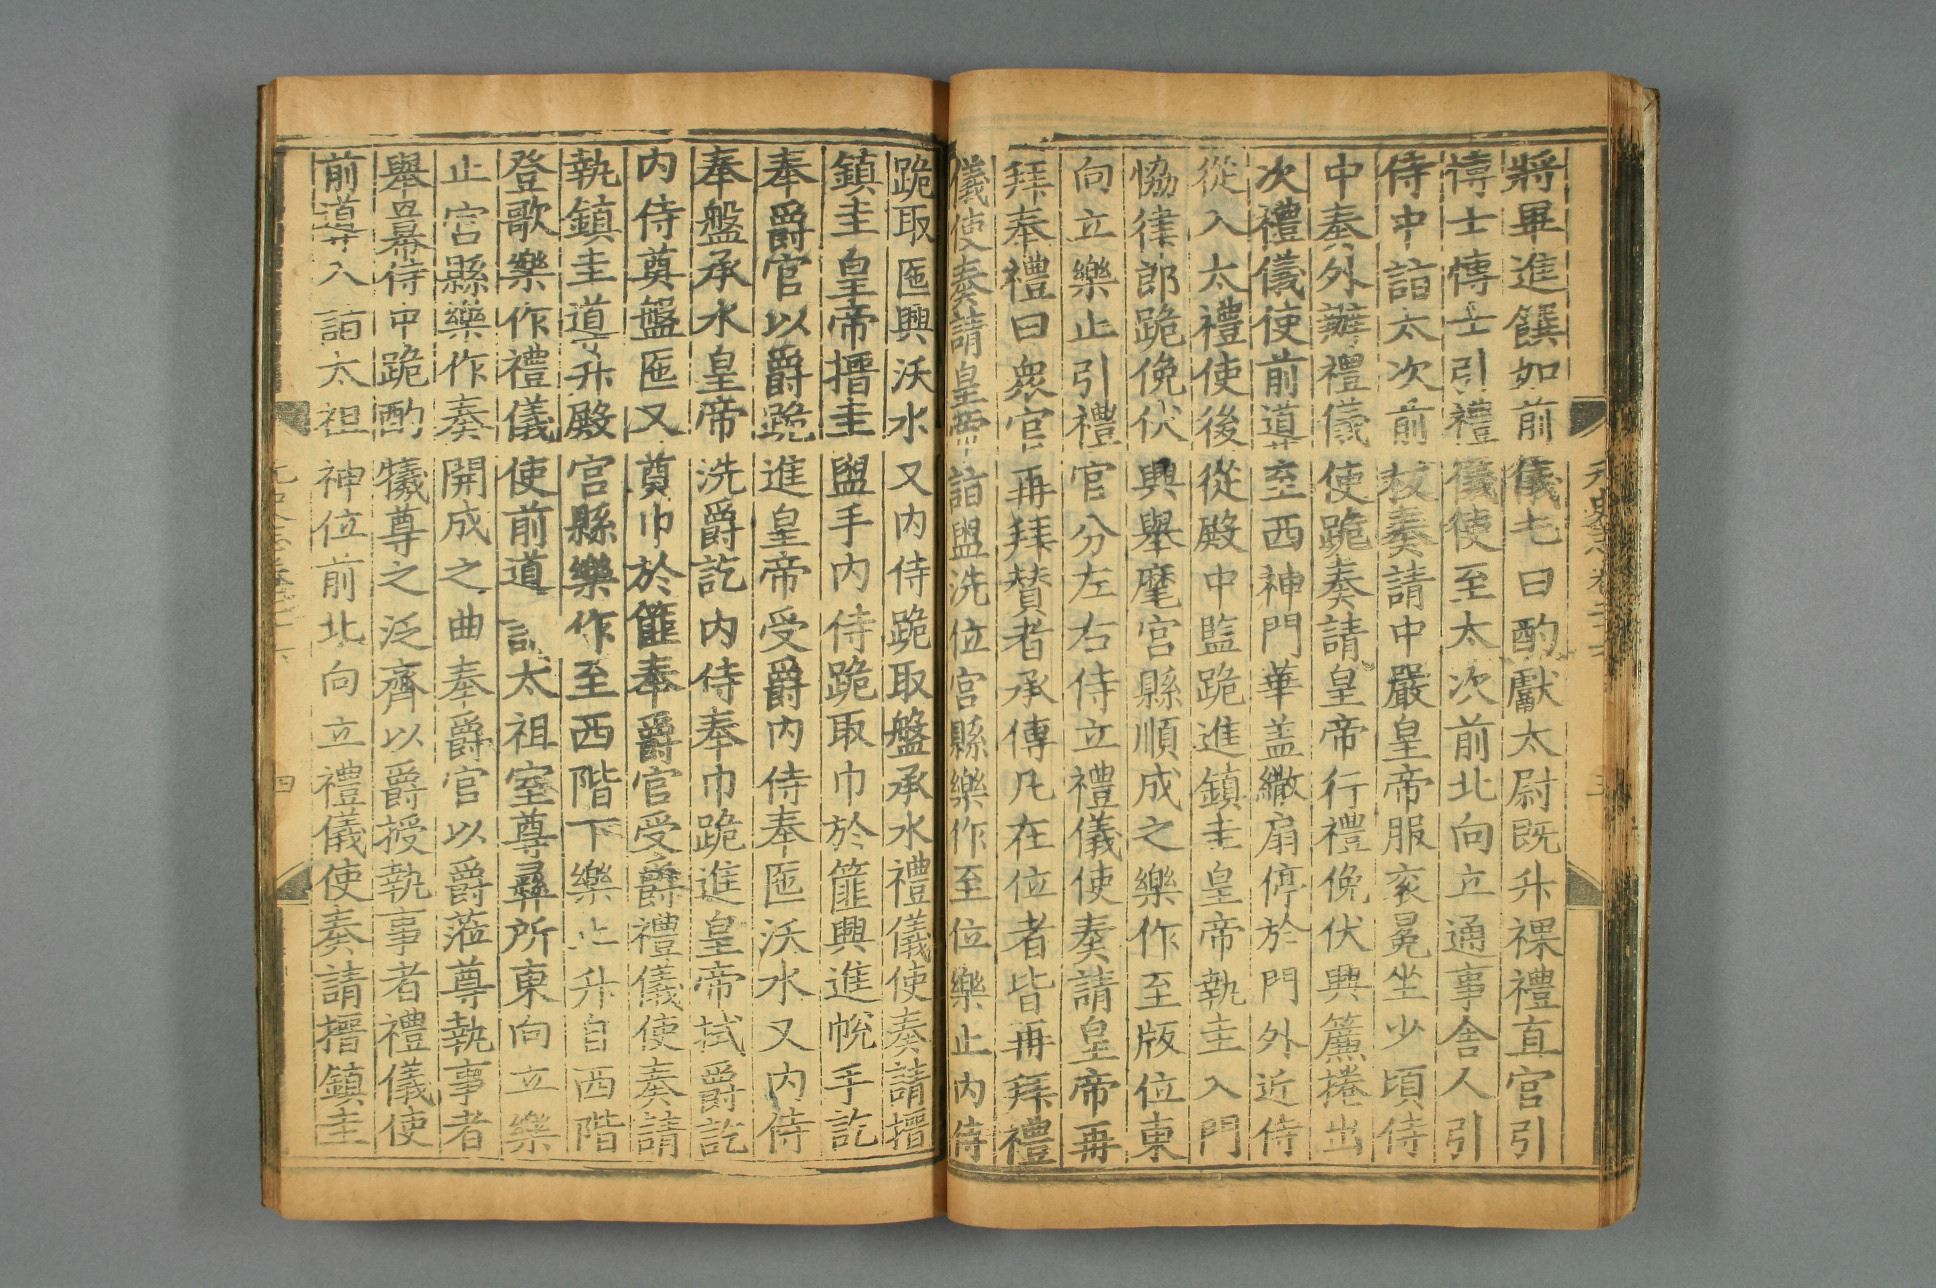 將畢進饌如前儀七曰酌獻太尉既升祼禮直官引
博士博士引禮儀使至太次前北向立通事舍人引
侍中詣太次前板奏請中嚴皇帝服衮冕坐少頃侍
中奏外辦禮儀使跪奏請皇帝行禮俛伏興簾捲出
次禮儀使前道至西神門華盖繖扇停於門外近侍
從入太禮使後從殿中監跪進鎮圭皇帝執圭入門
恊律郎跪俛伏興舉麾宮縣順成之樂作至版位東
向立樂止引禮官分左右侍立禮儀使奏請皇帝再
拜奉禮曰衆官再拜賛者承傳凡在位者皆再拜禮
儀使奏請皇帝詣盥洗位宮縣樂作至位樂止內侍
跪取匜興沃水又內侍跪取盤承水禮儀使奏請搢
鎮圭皇帝搢圭盥手內侍跪取巾於篚興進帨手訖
奉爵官以爵跪進皇帝受爵內侍奉匜沃水又內侍
奉盤承水皇帝洗爵訖內侍奉巾跪進皇帝拭爵訖
內侍奠盤匜又奠巾於篚奉爵官受爵禮儀使奏請
執鎮圭道升殿宮縣樂作至西階下樂止升自西階
登歌樂作禮儀使前道詣太祖室尊彝所東向立樂
止宮縣樂作奏開成之曲奉爵官以爵蒞尊執事者
舉冪侍中跪酌犧尊之泛齊以爵授執事者禮儀使
前導入詣太祖神位前北向立禮儀使奏請搢鎮圭
四